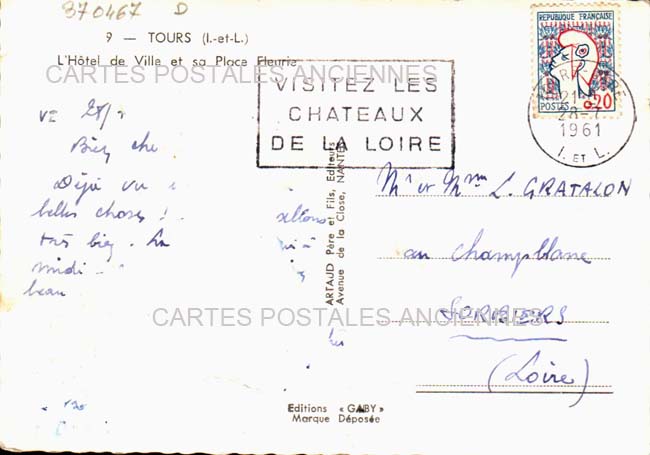 370467 D
9 — TOURS (I.-et-L.)
L'Hôtel de Ville et sa Place Fleurie
CARTES POSTALES ANCIENNES
VISITEZ LES
CHATEAUX
DE LA LOIRE
REPUBLIQUE FRANÇAISE
POSTES 0,20
28-7
1961
I. ET L.
Déjà vu
belles choses !
très bien.
midi
beau
ARTAUD Père et Fils, Editeurs
Avenue de la Close, NANTES
Mr et Mme L. GRATALON
au Champblanc
SORBIERS
(Loire)
CARTES POSTALES ANCIENNES
Editions « GABY »
Marque Déposée